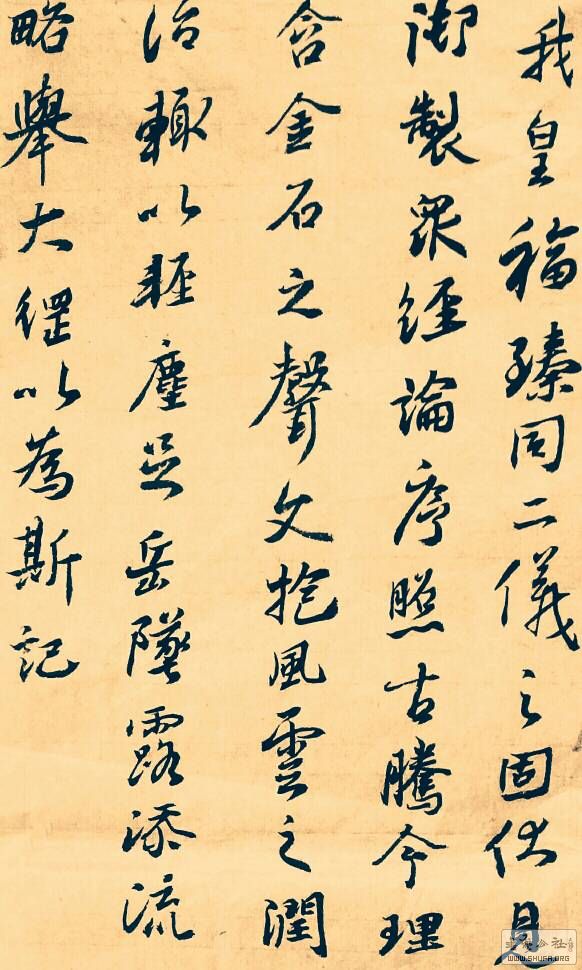 我皇福臻同二儀之固伏見
御製衆經論序照古騰今理
含金石之聲文抱風雲之潤
治輒以輕塵足岳墜露添流
略舉大綱以為斯記
WWW.SHUFA.ORG